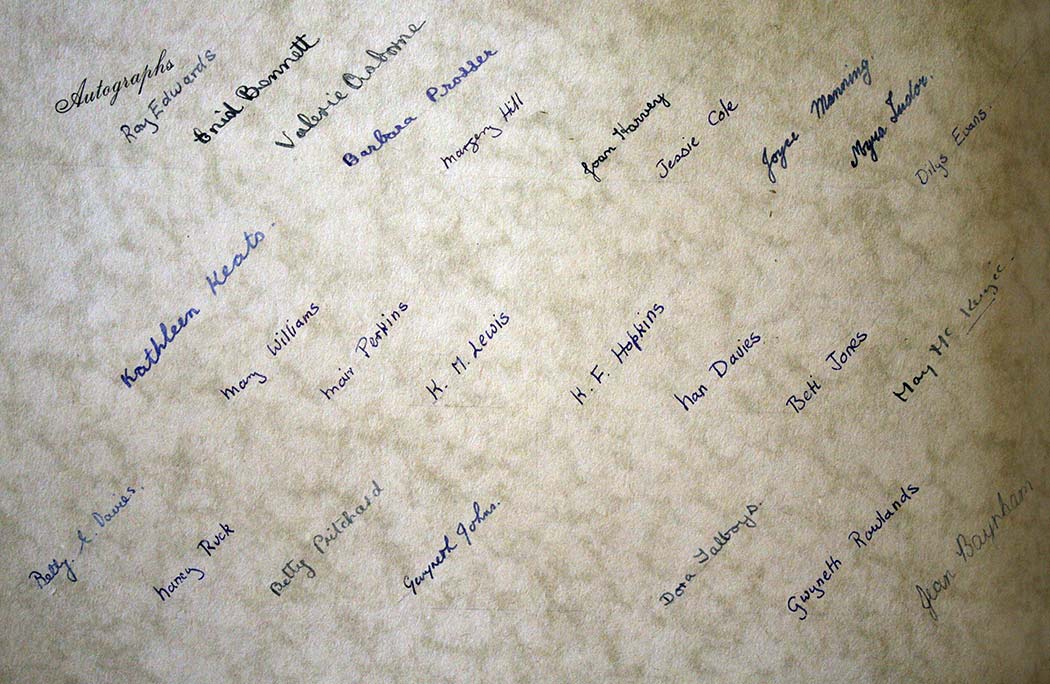 Autographs
Ray Edwards
Enid Bennett
Valerie Osborne
Barbara Prosser
Margery Hill
Joan Harvey
Jessie Cole
Joyce Manning.
Myra Tudor.
Dilys Evans.
Kathleen Keats.
Mary Williams
Mair Perkins
K. M. Lewis
K. F. Hopkins
Nan Davies
Beti Jones
May McKenzie.
Betty. E. Davies.
Nancy Ruck
Betty Pritchard
Gwyneth Johns.
Dora Talboys.
Gwyneth Rowlands
Jean Baynham